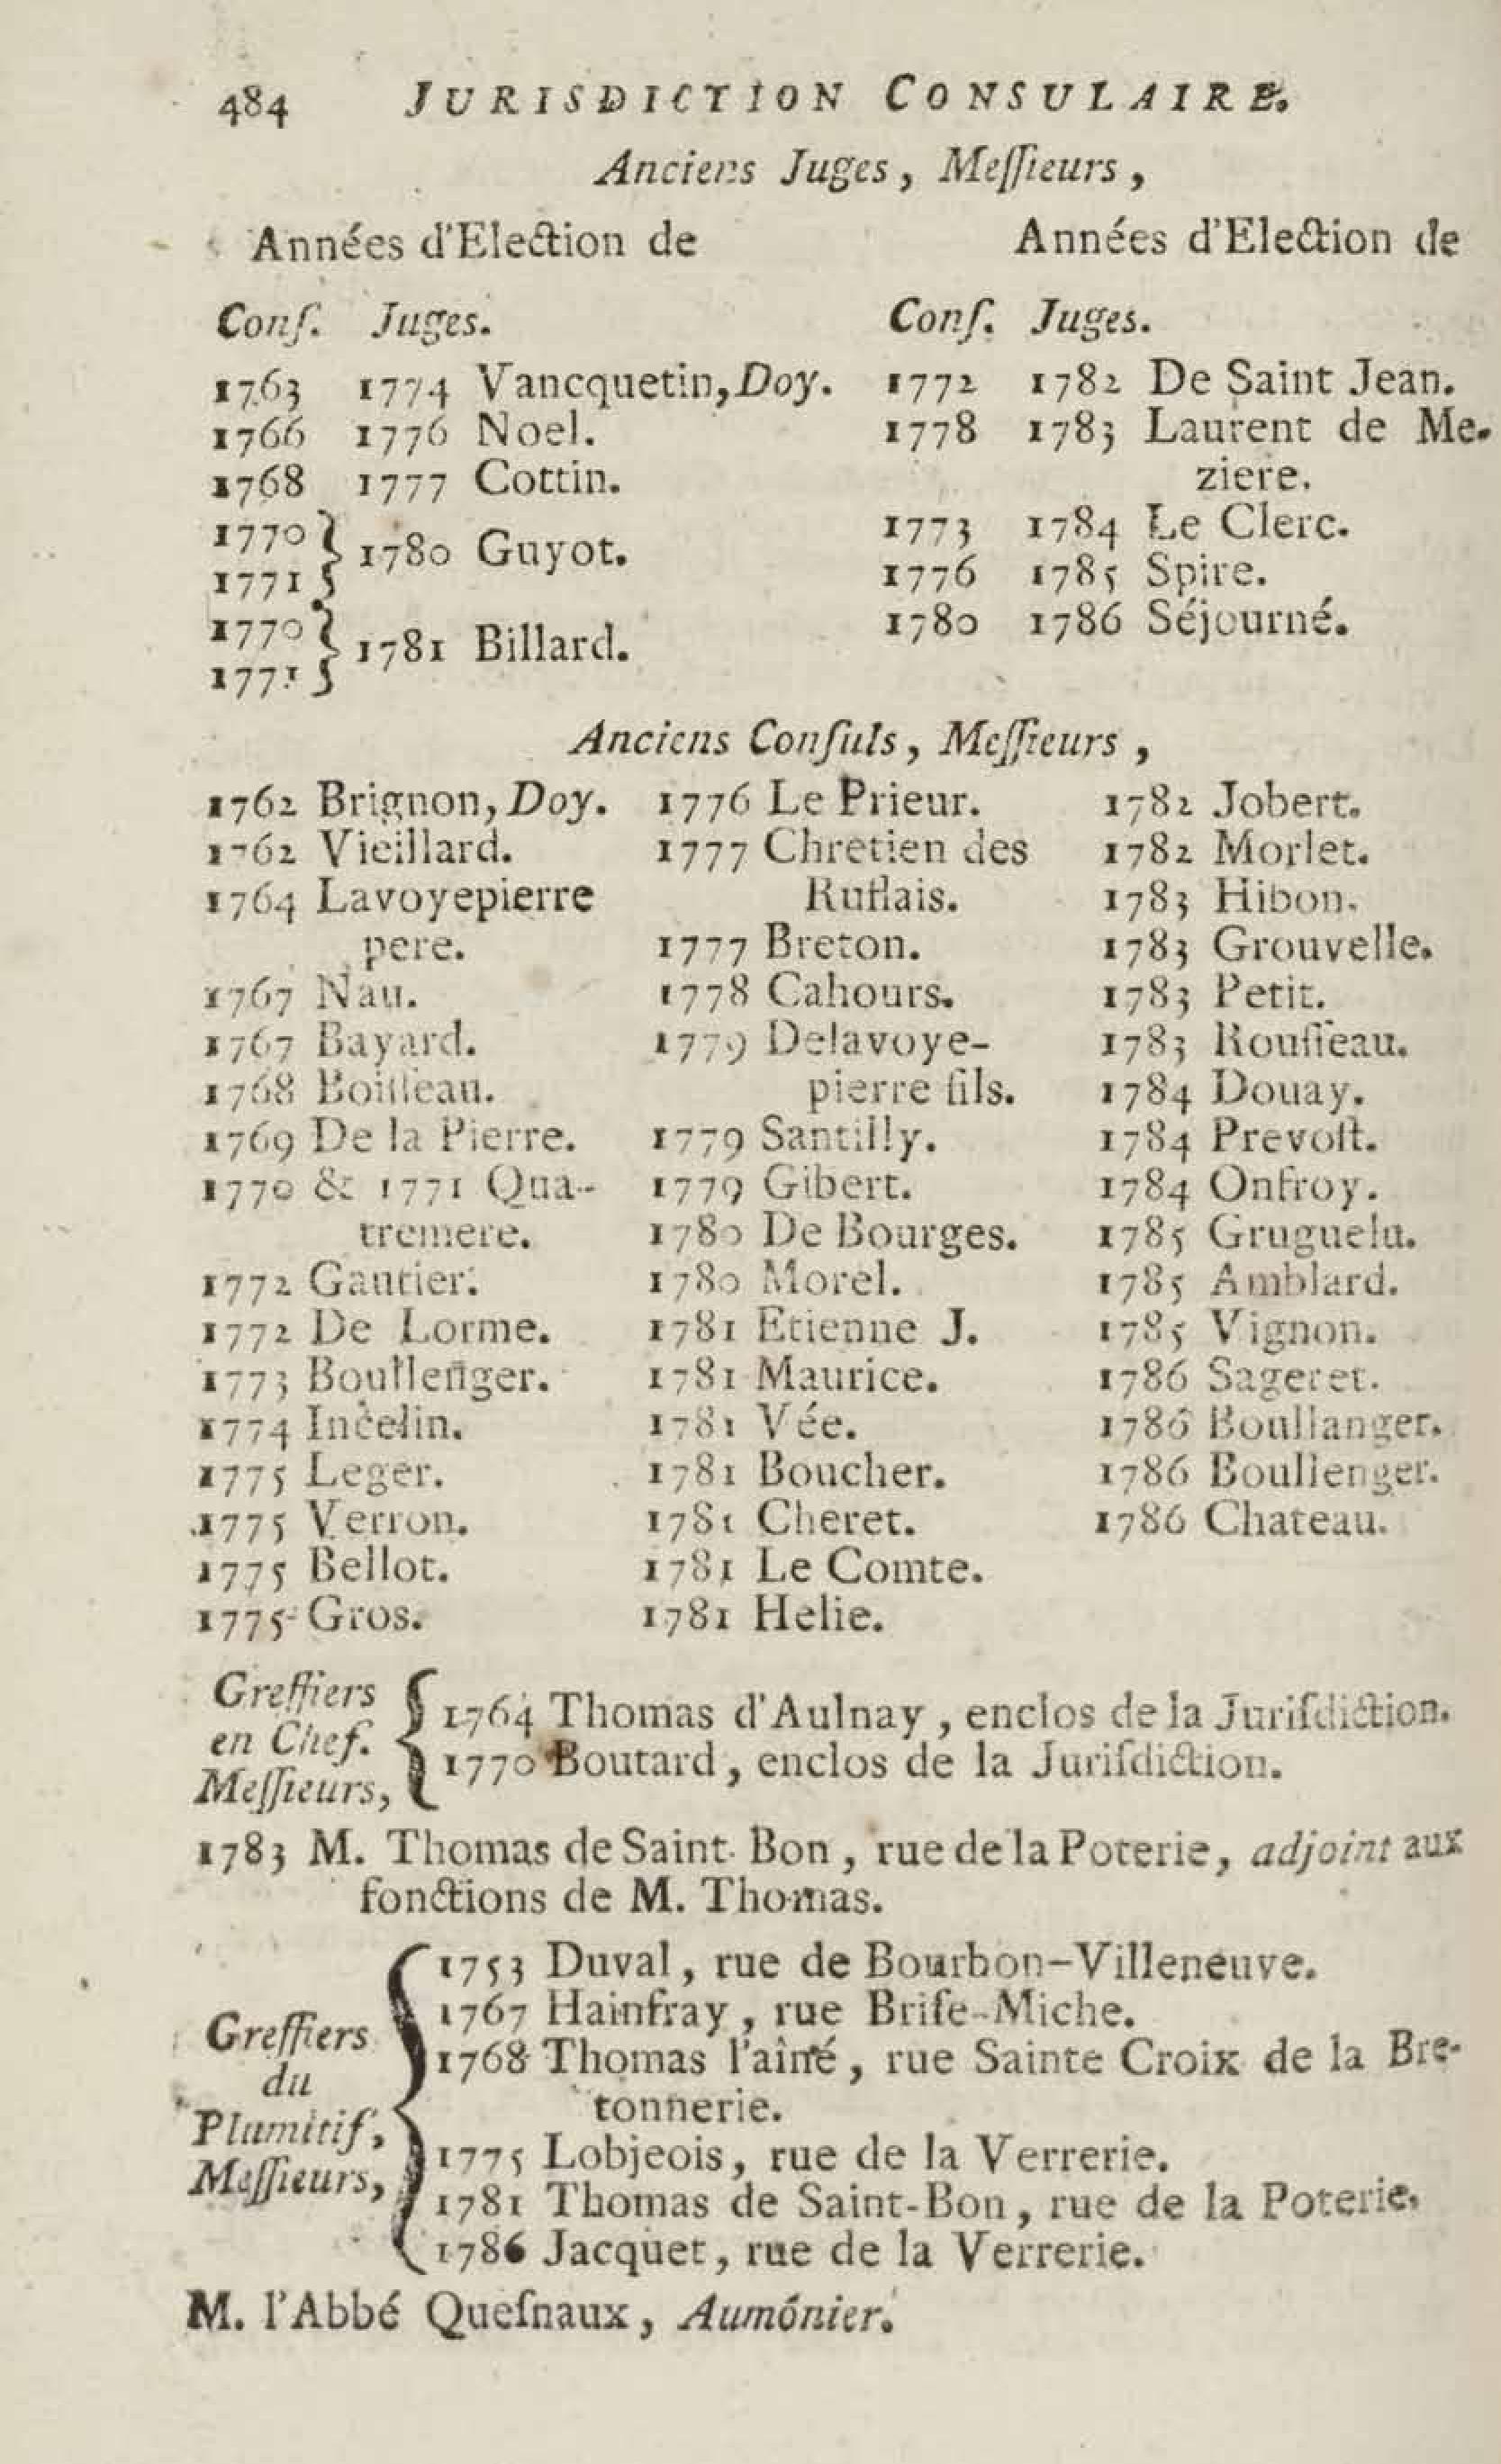 484 JURISDICTION CONSULAIRE.
Anciens Juges, Meſſieurs,
Années d'Election de
Conſ. Juges.
1763 1774 Vancquetin, Doy.
1766 1776 Noel.
1768 1777 Cottin.
1770 } 1780 Guyot.
1771 }
1770 } 1781 Billard.
1771 }
Années d'Election de
Conſ. Juges.
1772 1782 De Saint Jean.
1778 1783 Laurent de Me-
ziere.
1773 1784 Le Clerc.
1776 1785 Spire.
1780 1786 Séjourné.
Anciens Conſuls, Meſſieurs,
1762 Brignon, Doy.
1762 Vieillard.
1764 Lavoyepierre
pere.
1767 Nau.
1767 Bayard.
1768 Boilleau.
1769 De la Pierre.
1770 & 1771 Qua-
tremere.
1772 Gautier.
1772 De Lorme.
1773 Boullenger.
1774 Incelin.
1775 Leger.
1775 Verron.
1775 Bellot.
1775 Gros.
1776 Le Prieur.
1777 Chretien des
Ruflais.
1777 Breton.
1778 Cahours.
1779 Delavoye-
pierre fils.
1779 Santilly.
1779 Gibert.
1780 De Bourges.
1780 Morel.
1781 Etienne J.
1781 Maurice.
1781 Vée.
1781 Boucher.
1781 Cheret.
1781 Le Comte.
1781 Helie.
1782 Jobert.
1782 Morlet.
1783 Hibon.
1783 Grouvelle.
1783 Petit.
1783 Rouſſeau.
1784 Douay.
1784 Prevoſt.
1784 Onfroy.
1785 Gruguelu.
1785 Amblard.
1785 Vignon.
1786 Sageret.
1786 Boullanger.
1786 Boullenger.
1786 Chateau.
Greffiers
en Chef.
Meſſieurs,
1764 Thomas d'Aulnay, enclos de la Juriſdiction.
1770 Boutard, enclos de la Juriſdiction.
1783 M. Thomas de Saint-Bon, rue de la Poterie, adjoint aux
fonctions de M. Thomas.
Greffiers
du
Plumitif,
Meſſieurs,
1753 Duval, rue de Bourbon-Villeneuve.
1767 Hainfray, rue Briſe-Miche.
1768 Thomas l'aîné, rue Sainte Croix de la Bre-
tonnerie.
1775 Lobjeois, rue de la Verrerie.
1781 Thomas de Saint-Bon, rue de la Poterie.
1786 Jacquet, rue de la Verrerie.
M. l'Abbé Queſnaux, Aumónier.